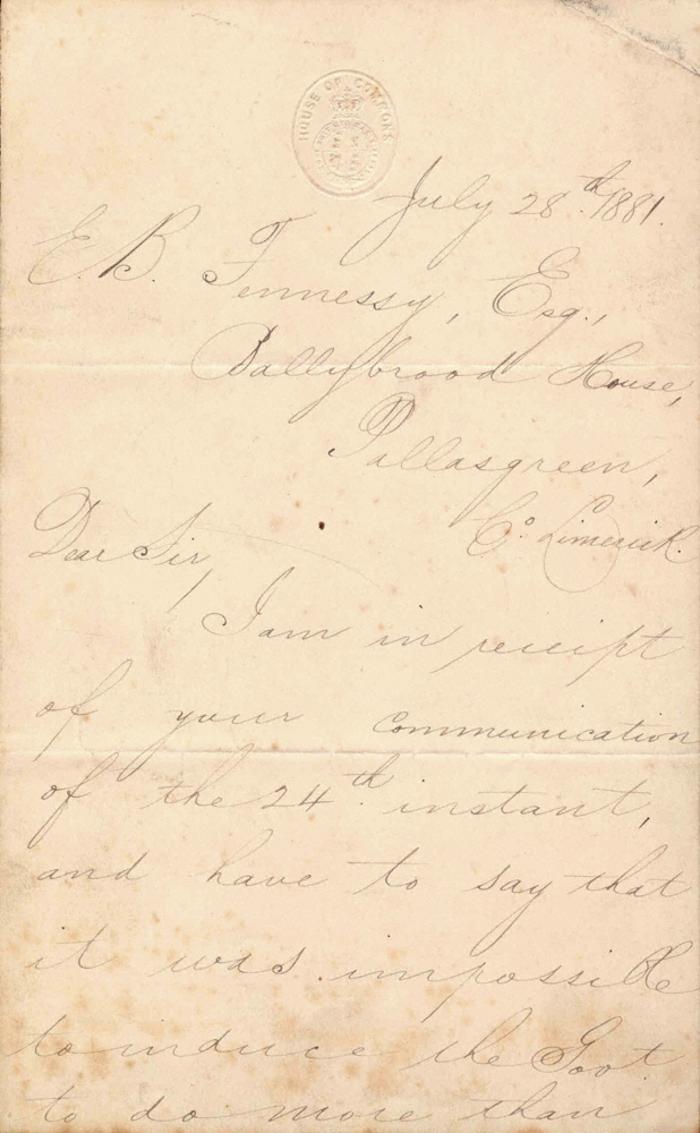 HOUSE OF COMMONS
July 28th. 1881.
E. B. Fennessy, Esq.,
Ballybrood House,
Pallasgreen,
Co. Limerick.
Dear Sir,
I am in receipt
of your communication
of the 24th. instant,
and have to say that
it was impossible
to induce the Govt.
to do more than